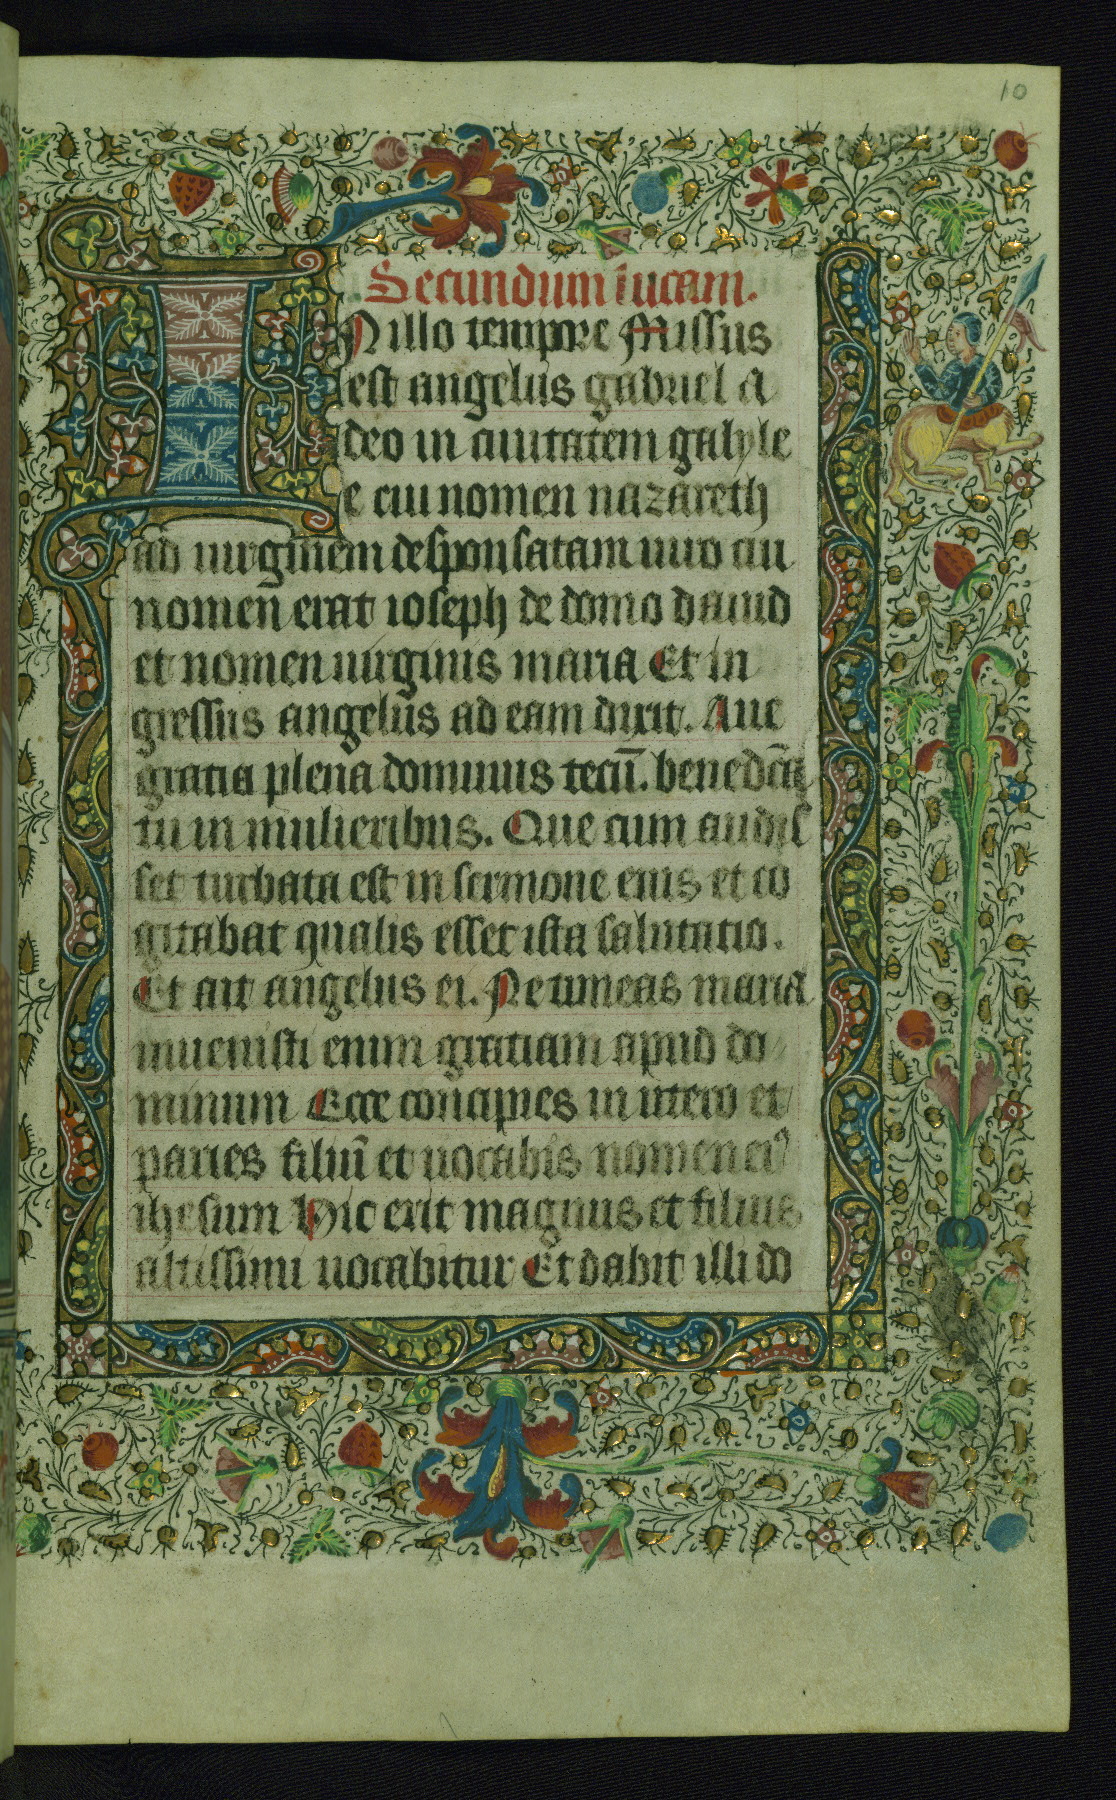 10
Secundum lucam.
N illo tempore Missus
est angelus gabriel a
deo in ciuitatem galyle
e cui nomen nazareth
ad uirginem desponsatam uiro cui
nomen erat ioseph de domo dauid
et nomen uirginis maria Et in
gressus angelus ad eam dixit. Aue
gratia plena dominus tecū. benedc̄a
tu in mulieribus. Que cum audis
set turbata est in sermone eius et co
gitabat qualis esset ista salutatio.
Et ait angelus ei. Ne timeas maria
inuenisti enim gratiam apud do
minum Ecce concipies in utero et
paries filiū et uocabis nomen eiꝰ
ihesum Hic erit magnus et filius
altissimi uocabitur Et dabit illi do